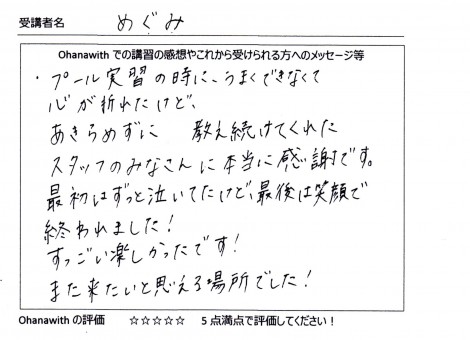 受講者名 めぐみ
Ohanawith での講習の感想やこれから受けられる方へのメッセージ等
・プール実習の時に、うまくできなくて
心が折れたけど、
あきらめずに 教え続けてくれた
スタッフのみなさんに本当に感謝です。
最初はずっと泣いてたけど、最後は笑顔で
終われました!
すっごい楽しかったです!
また来たいと思える場所でした!
Ohanawith の評価 ☆☆☆☆☆ 5点満点で評価してください!